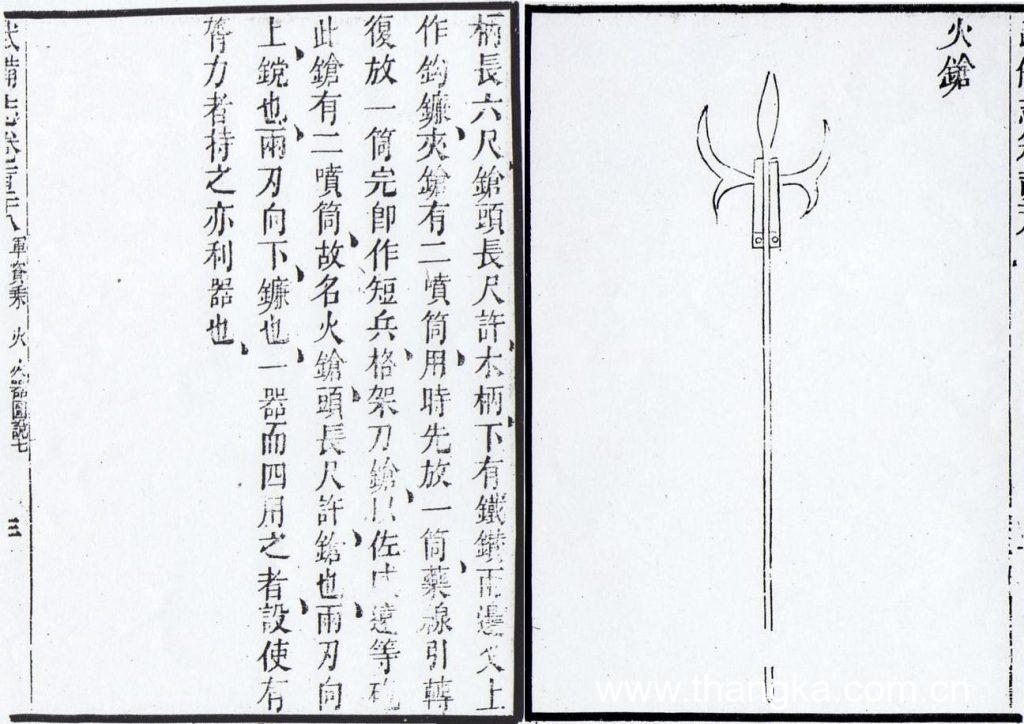 火鎗
柄長六尺鎗頭長尺許木柄下有鐵鑚兩邊叉上
作鈎鐮夾鎗有二噴筒用時先放一筒藥線引轉
復放一筒完即作短兵格架刀鎗以佐威遠等砲
此鎗有二噴筒故名火鎗頭長尺許鎗也兩刃向
上鎲也兩刃向下鐮也一器而四用之者設使有
膂力者持之亦利器也
武備志卷 軍資乘 火 火器圖說七
三
www.thangka.com.cn